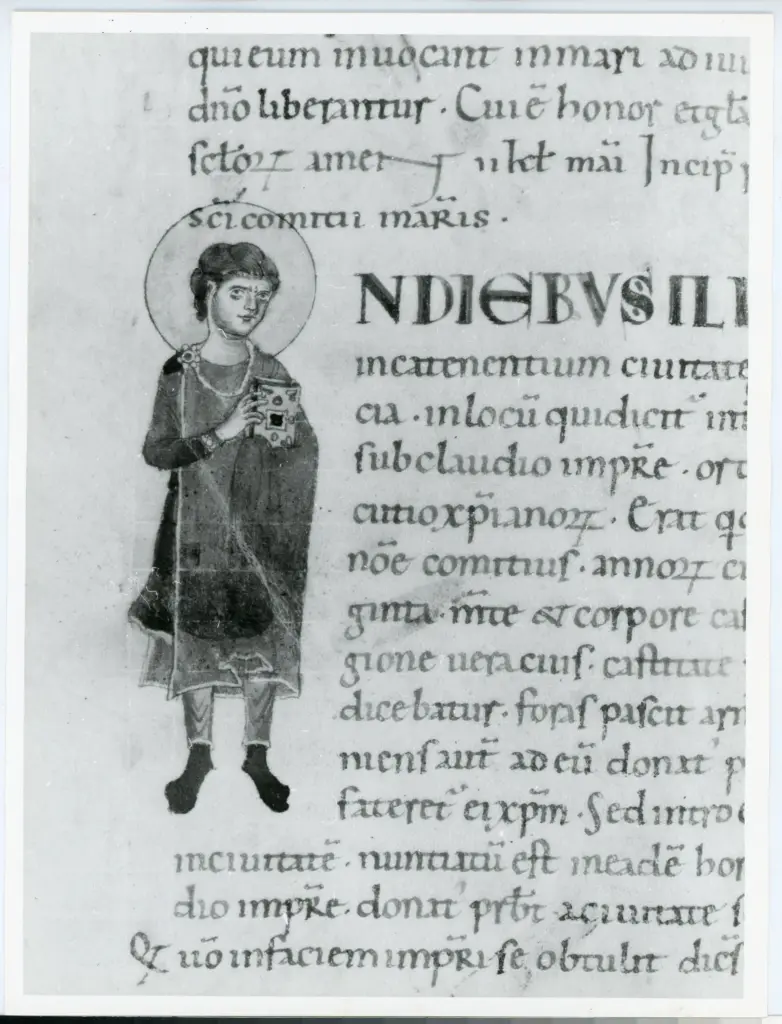 qui eum inuocant in mari ad
dn̄o liberantur. Cui ē honor et gl̄a
sc̄toꝝ amen kl̄ mai Incip̄
sc̄i comitii mar̄is.
NDIEBVS ILL
in catenentium ciuitate
cia. in locū qui dicit̄
sub claudio imp̄re. ort
cutio xp̄ianoꝝ. Erat
nōe comitius. annoꝝ
ginta. m̄te & corpore cas
gione ueracius. castitate
dicebatur. foras pascit arm
mens aut̄ ad eū donat' p
fateret' ei xp̄m. Sed intro
in ciuitatē. nuntiatū est in eadē hor
dio imp̄re. donat' pr̄bt̄ a ciuitate s
uō in faciem imp̄ri se obtulit dic̄s